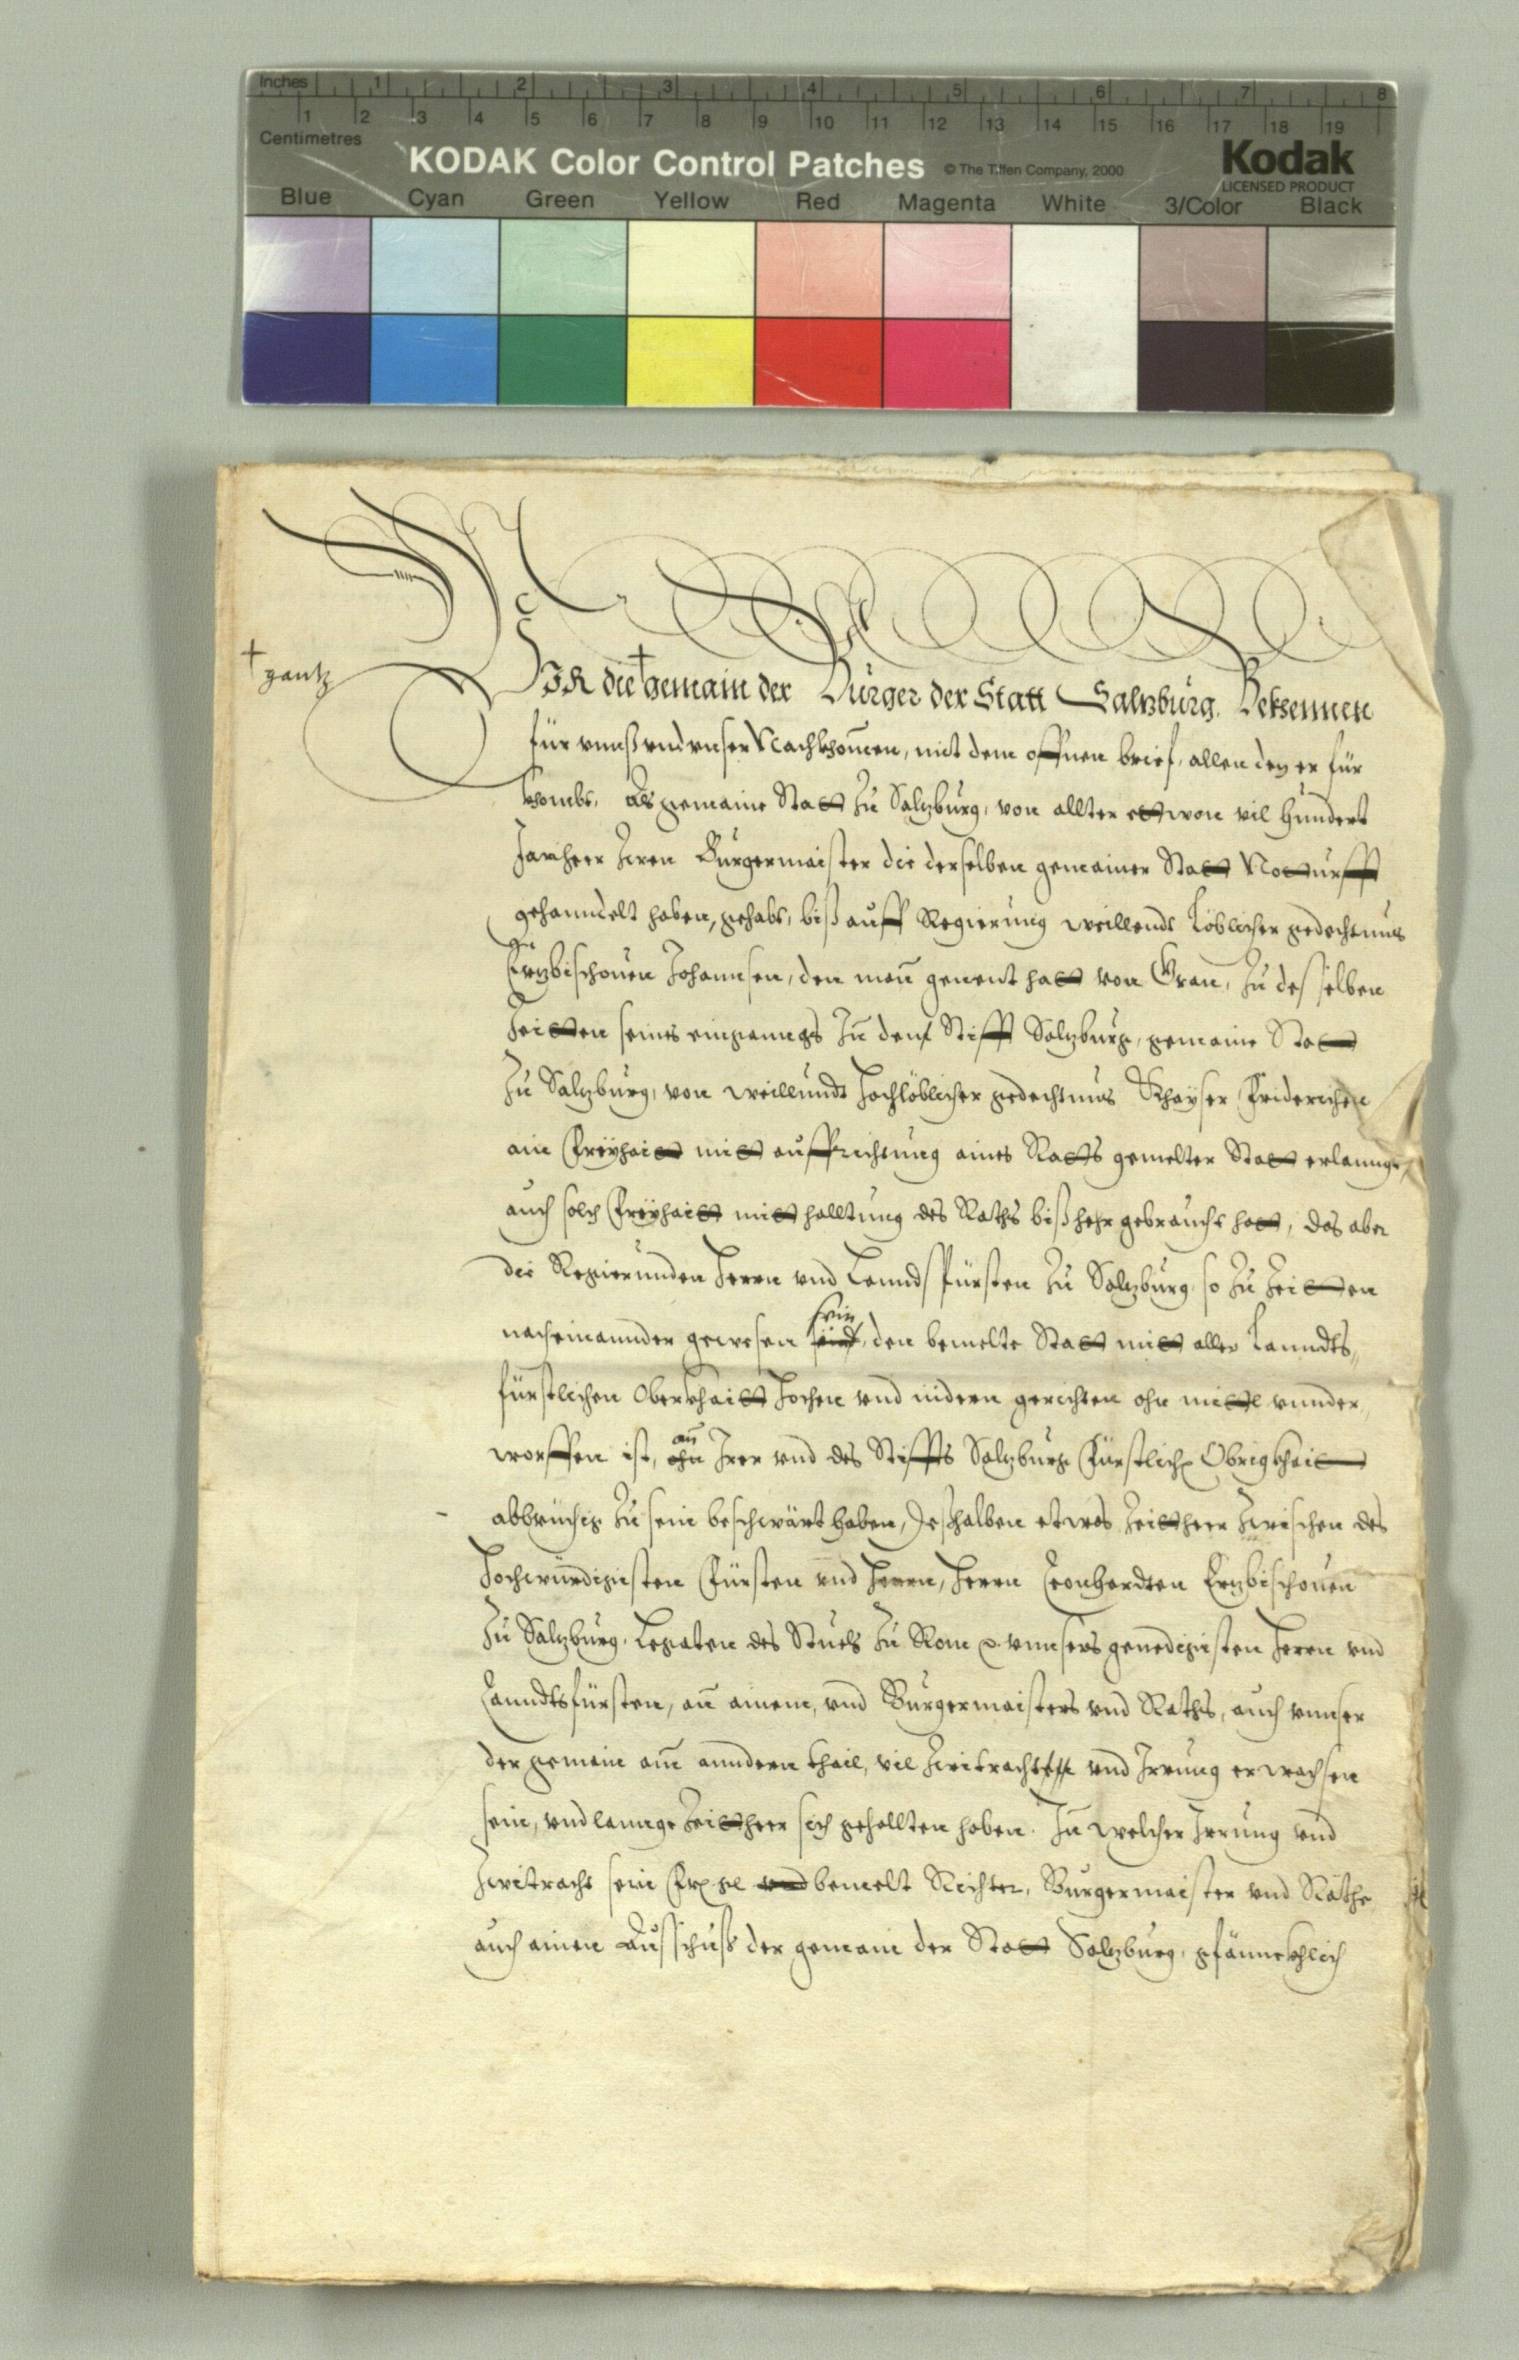 Inches 1 2 3 4 5 6 7 8
1 2 3 4 5 6 7 8 9 10 11 12 13 14 15 16 17 18 19
Centimetres
KODAK Color Control Patches © The Tiffen Company, 2000 Kodak
LICENSED PRODUCT
Blue Cyan Green Yellow Red Magenta White 3/Color Black
+ gantz
WIR die + gemain der Burger der Statt Saltzburg. Bekhennen
für unnß und unser Nachkhomen, mit dem offnen brief, allen den er für
khombt, als gemaine Statt zu Saltzburg, von allter ettwon vil hundert
Jar heer Iren Burgermaister die derselben gemainer Statt Notturfft
gehanndelt haben, gehabt, biß auff Regierung weillendt Löblicher gedechtnus
Ertzbischouen Johannsen, den man genent hatt von Gran, Zu desselben
Zeitten seines einganngs Zu dem Stifft Saltzburg, gemaine Statt
zu Saltzburg, von weillundt hochlöblicher gedechtnus Khayser Friderichen
ain Freyhaitt mitt auffrichtung aines Ratts gemelter Statt erlanngt
auch solch Freyhaitt mitt halltung des Raths biß hehr gebraucht hatt, das aber
die Regierunden Herrn und Lanndsfürsten Zu Saltzburg, so zu Zeitten
nacheinannder gewesen sein, den bemelte Statt mitt aller Lanndts,,
fürstlichen Oberkhaitt Hochen und nidern gerichten ohn mittl unnder,,
worffen ist, an Irer und des Stiffts Saltzburg Fürstlich Obrigkhaitt
abbrüchig Zu sein beschwärt haben, Deßhalben etwas Zeittheer Zwischen des
Hochwürdigisten Fürsten und Herrn, Herrn Leonhardten Ertzbischouen
Zu Saltzburg, Legaten des Stuels Zu Rom unnsers genedigisten Herrn und
Lanndtsfürsten, an ainem, und Burgermaisters und Raths, auch unnser
der gemain am anndern thail, vil Zwitracht und Irrung erwachsen
sein, und lannge Zeittheer sich gehallten haben. In welcher Irrung und
Zwitracht sein bemelt Richter, Burgermaister und Räthe
auch ainen Ausschuß der gemain der Statt Saltzburg, gfännckhlich